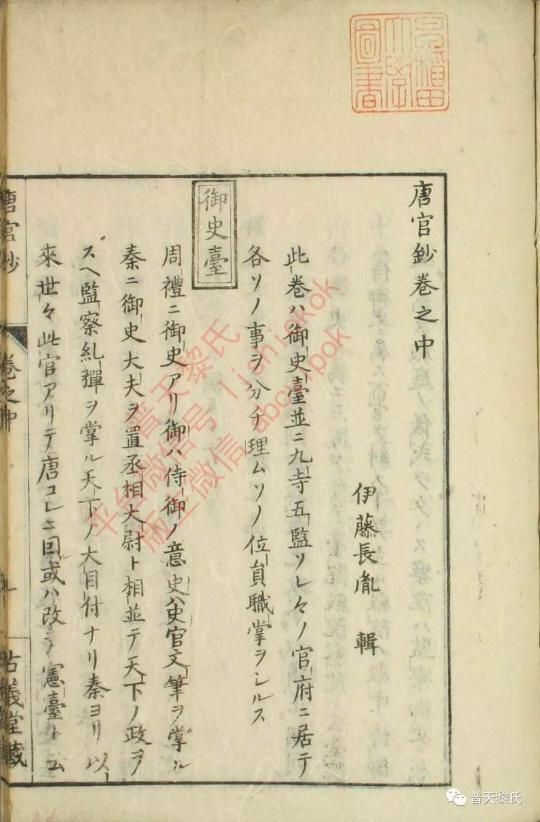 唐官鈔卷之中
伊藤長胤 輯
此卷ハ御史臺並ニ九寺五監ソレ々ノ官府ニ居テ
各ソノ事ヲ分チ理ムソノ位員職掌ヲシルス
御史臺
周禮ニ御史アリ御ハ侍御ノ意史ハ史官文筆ヲ掌ル
秦ニ御史大夫ヲ置丞相大尉ト相並テ天下ノ政ヲ
スヘ監察糺彈ヲ掌ル天下ノ大目付ナリ秦ヨリ以
來世々此官アリテ唐コレニ因或ハ改テ憲臺トム
唐官鈔
卷之中
一
古義堂藏
圖書
普天黎氏
平台微信号
版主微信
普天黎氏